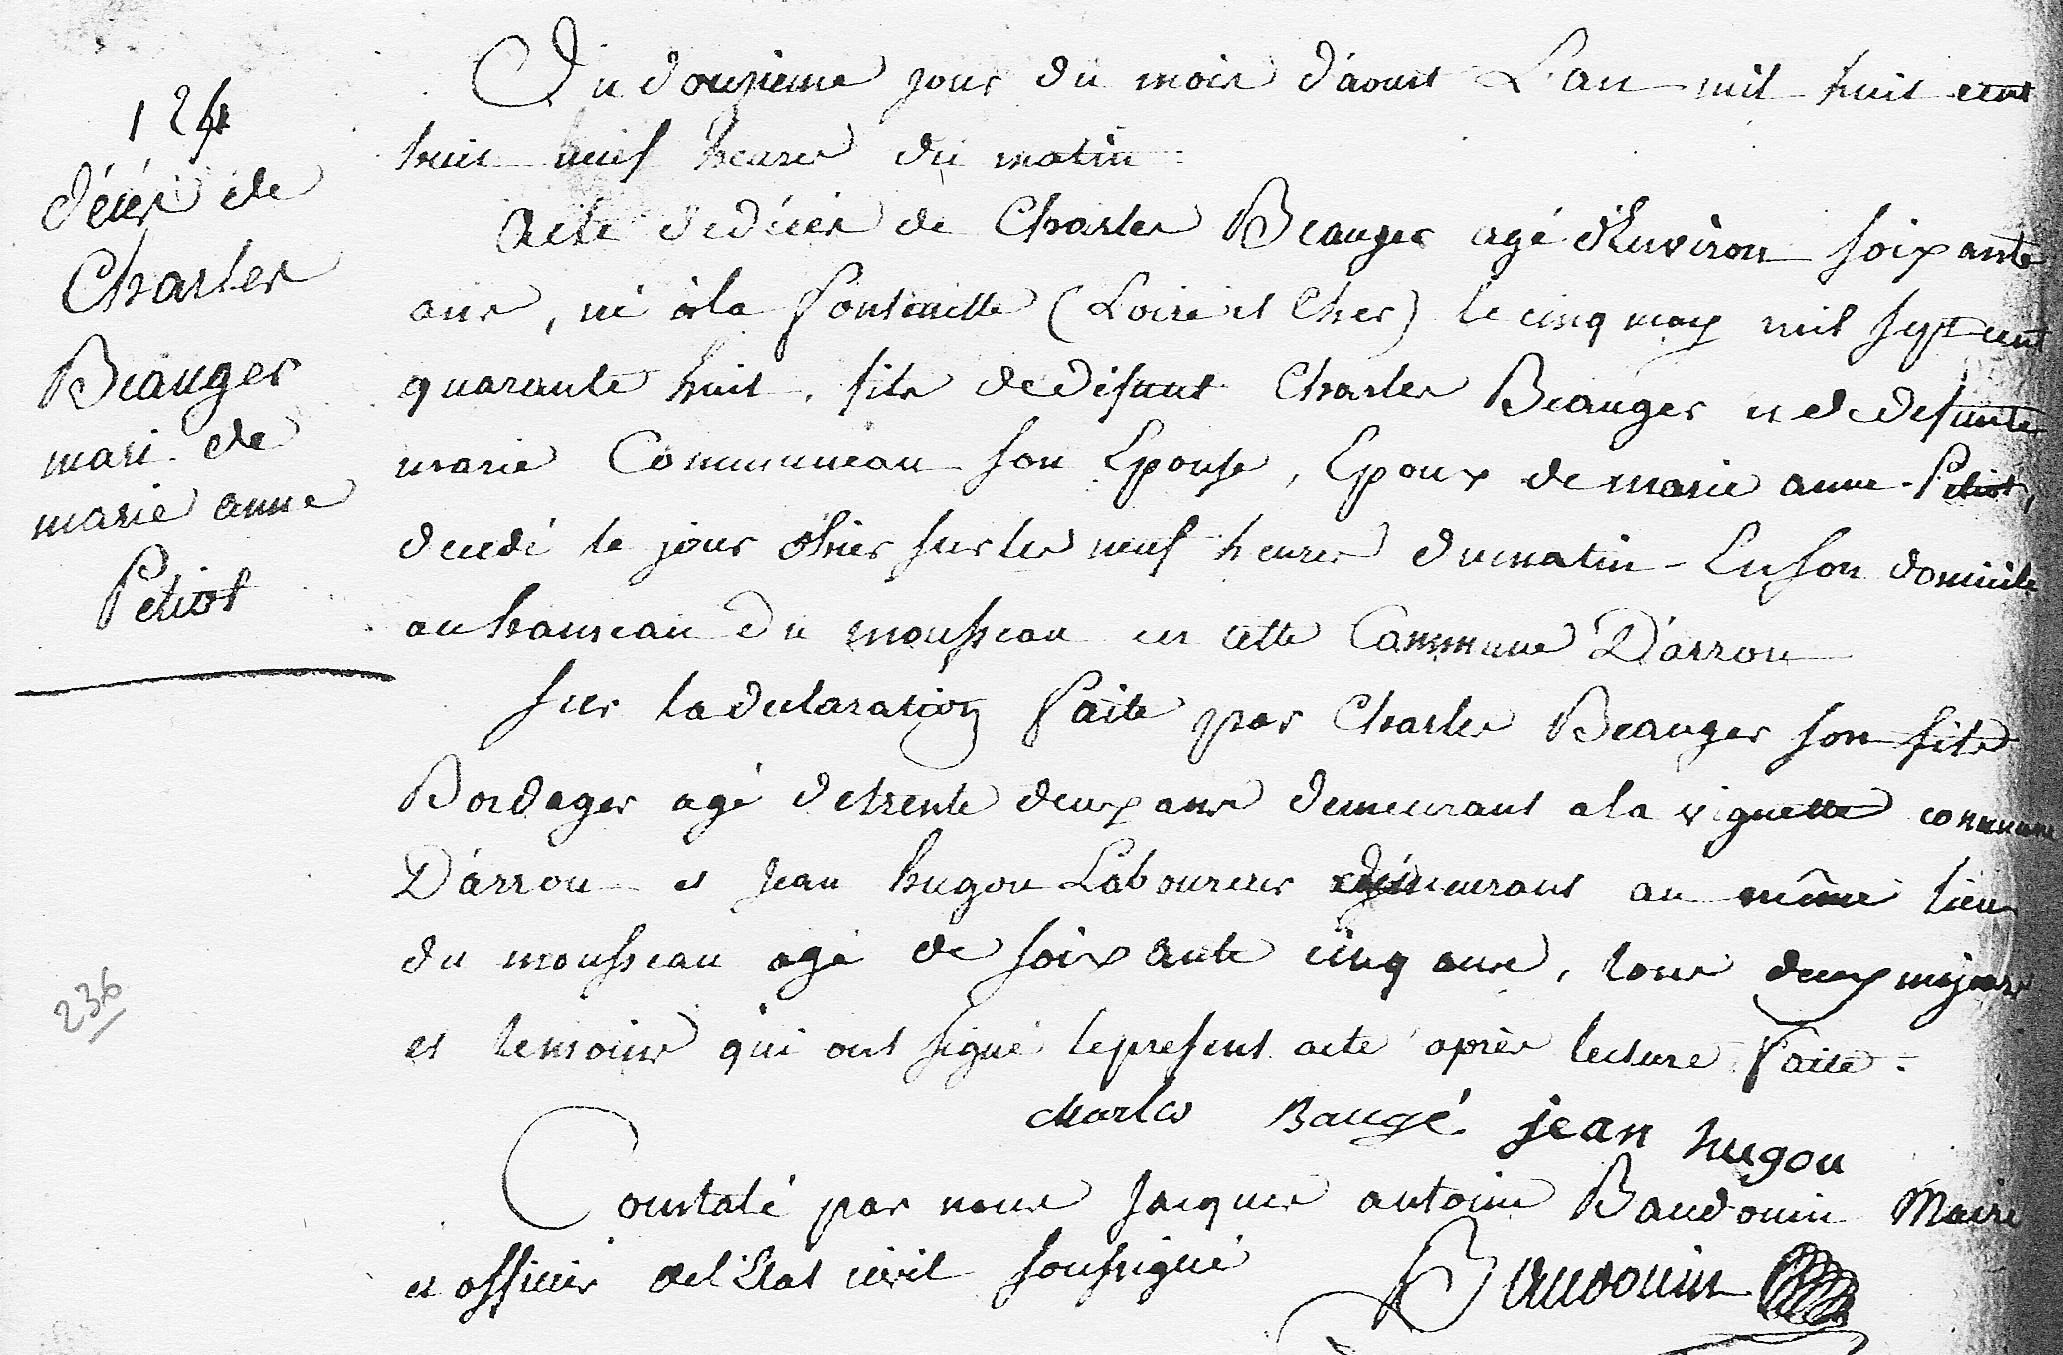 124
décès de
Charles
Beauger
mari de
marie anne
Petiot
236
Du douzieme jour du mois d'aoust L'an mil huit cent
huit neuf heures du matin
Acte de décès de Charles Beauger agé d'Environ soixante
ans, né à la fontenelle (Loir et Cher) le cinq may mil sept cent
quarante huit, fils de défunt Charles Beauger et de defunte
marie Communeau son Epouse, Epoux de marie anne Petiot,
decedé le jour d'hier sur les neuf heures du matin En son domicile
au hameau du mousseau en cette Commune D'arrou
sur la declaration faite par Charles Beauger son fils
Bordager agé de trente deux ans demeurant a la vignette commune
D'arrou et jean hugou Laboureur demeurant au même lieu
du mousseau agé de soixante cinq ans, tous deux majeurs
et temoins qui ont signé le present acte après lecture faite.
charles Baugé jean hugou
Constaté par nous Jacques antoine Baudouin Maire
et officier de l'Etat civil soussigné
Baudouin